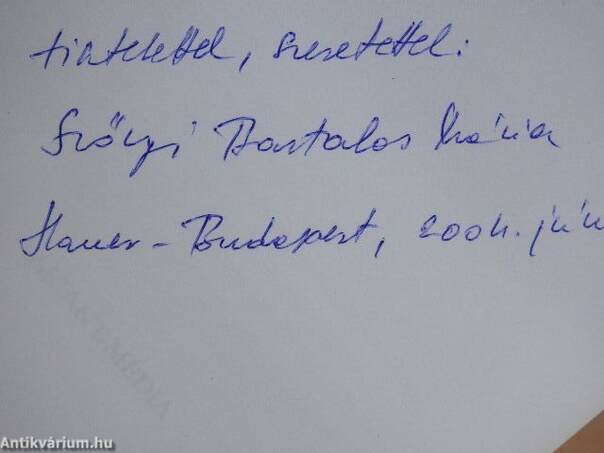 tisztelettel, szeretettel:
Szőnyi Bartalos Mária
Hauer - Budapest, 2004. jún
Antikvárium.hu